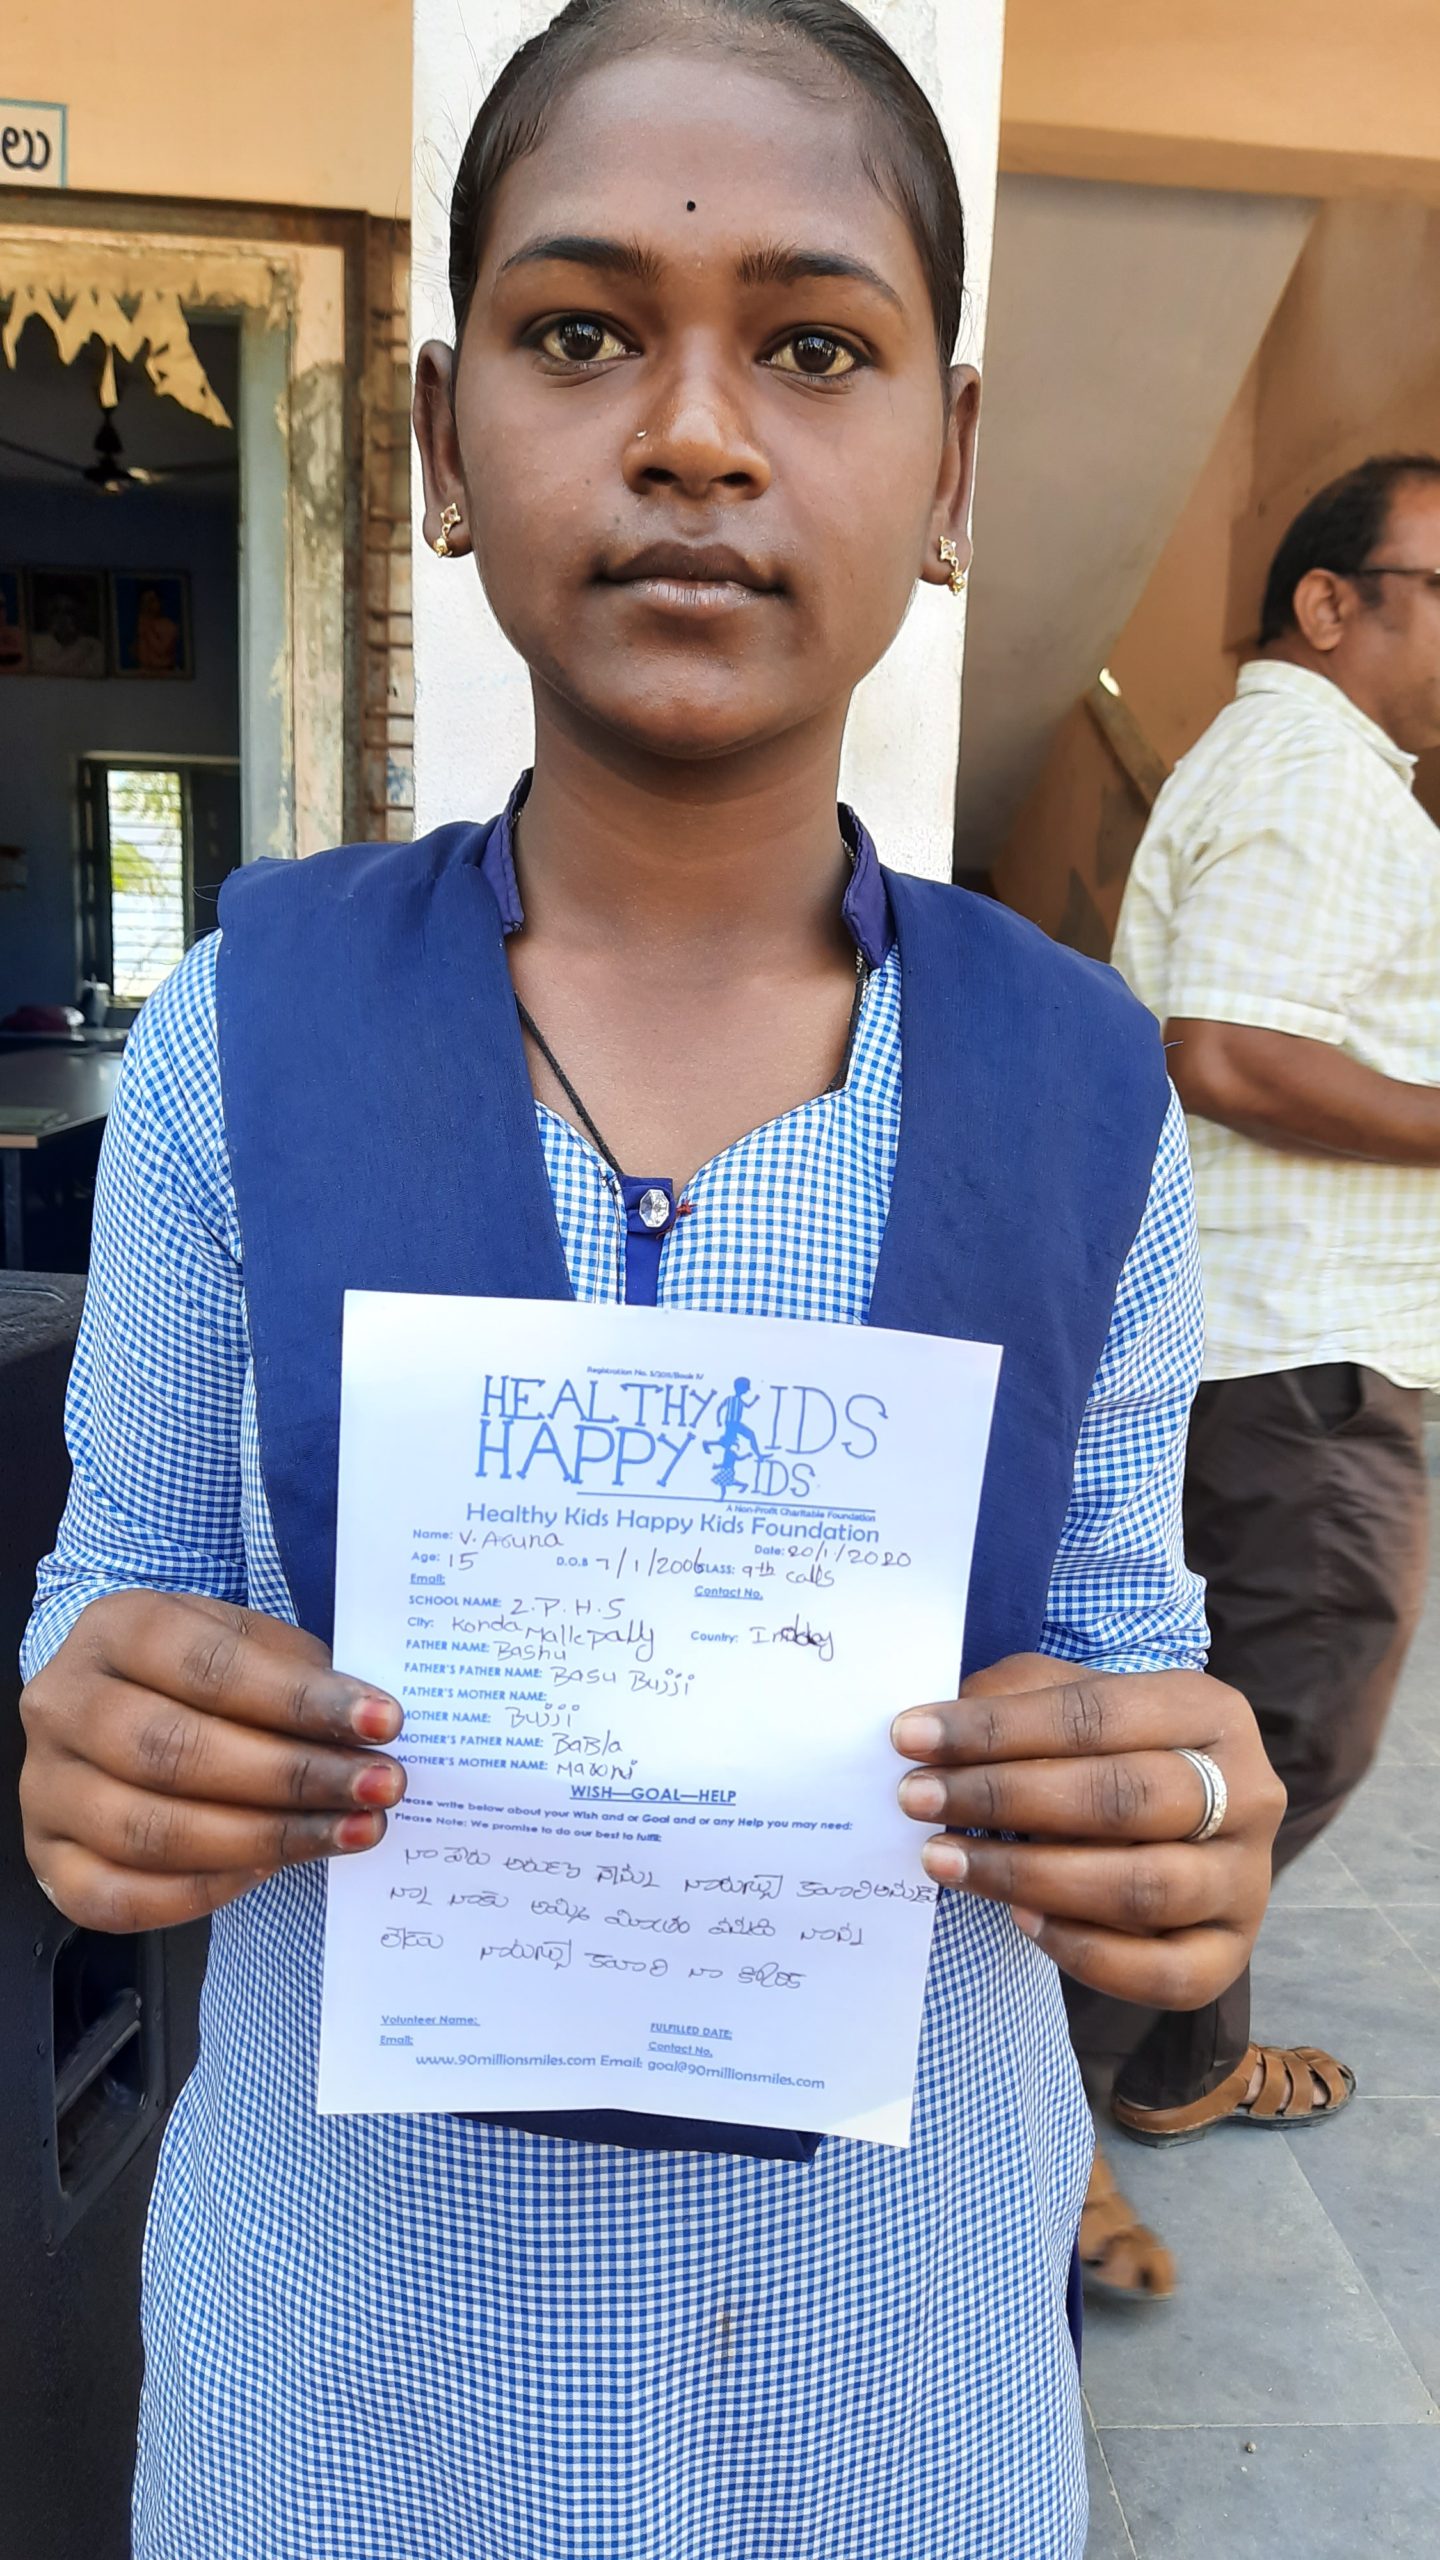 లు
Registration No. 5/2011/Book IV
HEALTHY KIDS
HAPPY KIDS
A Non-Profit Charitable Foundation
Healthy Kids Happy Kids Foundation
Name: V. Aruna Date: 20/1/2020
Age: 15 D.O.B 7/1/2006 CLASS: 9th calls
Email: Contact No.
SCHOOL NAME: Z.P.H.S
City: Konda Mallepally Country:
FATHER NAME: Bashu
FATHER'S FATHER NAME: Basu Bujji
FATHER'S MOTHER NAME:
MOTHER NAME: Bujji
MOTHER'S FATHER NAME: BaBla
MOTHER'S MOTHER NAME: Maroni
WISH—GOAL—HELP
Please write below about your Wish and or Goal and or any Help you may need:
Please Note: We promise to do our best to fulfil:
నా పేరు అరుణ నేను నాకు
నా నాకు అమ్మ నాన్న
లేడు నా కోరిక
Volunteer Name: FULFILLED DATE:
Email: Contact No.
www.90millionsmiles.com Email: goal@90millionsmiles.com